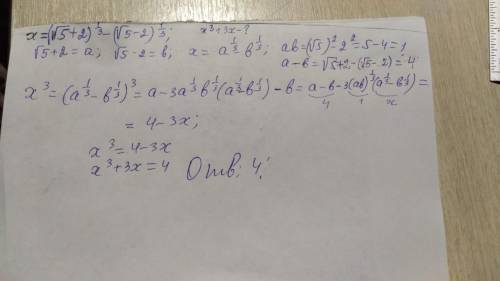 x=(√5+2)^{1/3}-(√5-2)^{1/3}; x³+3x-?
√5+2=a; √5-2=b; x=a^{1/3}-b^{1/3} ab=(√5)²-2²=5-4=1
a-b=√5+2-(√5-2)=4
x³=(a^{1/3}-b^{1/3})³=a-3a^{1/3}b^{1/3}(a^{1/3}-b^{1/3})-b=a-b-3(ab)^{1/3}(a^{1/3}-b^{1/3})=
4 1 x
=4-3x;
x³=4-3x
x³+3x=4 Отв: 4.